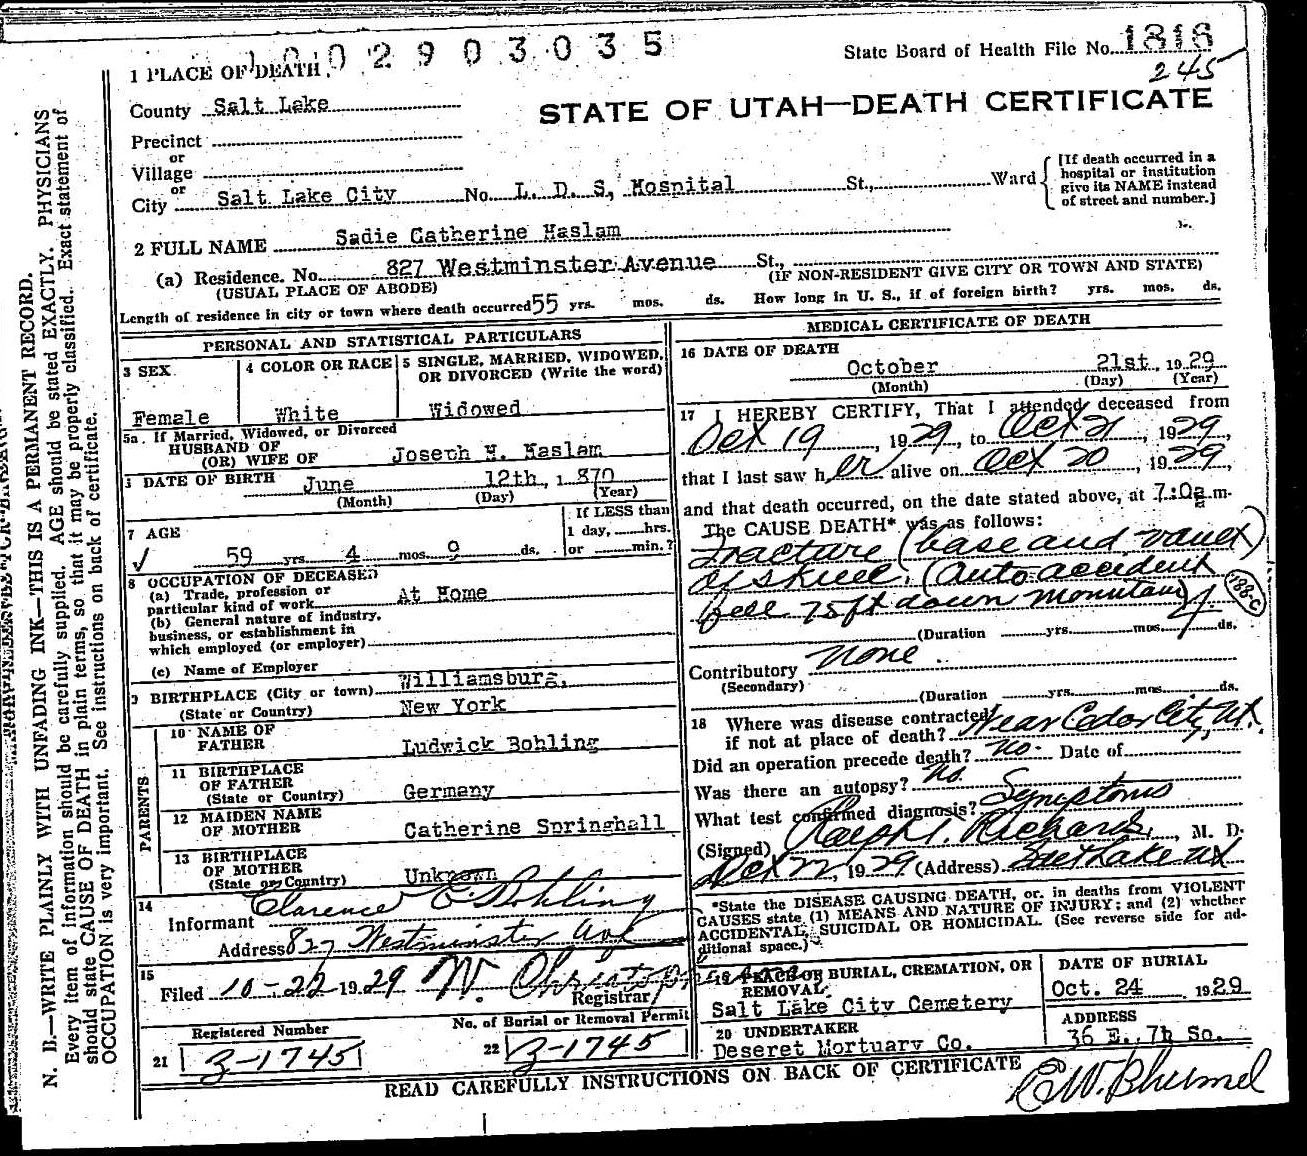 1002903035
State Board of Health File No. 1818
245
1 PLACE OF DEATH
County Salt Lake
STATE OF UTAH—DEATH CERTIFICATE
Precinct
or
Village
or
City Salt Lake City No. L. D. S, Hospital St., Ward
[If death occurred in a
hospital or institution
give its NAME instead
of street and number.]
2 FULL NAME Sadie Catherine Haslam
(a) Residence. No. 827 Westminster Avenue St.,
(USUAL PLACE OF ABODE) (IF NON-RESIDENT GIVE CITY OR TOWN AND STATE)
Length of residence in city or town where death occurred 55 yrs. mos. ds. How long in U. S., if of foreign birth? yrs. mos. ds.
PERSONAL AND STATISTICAL PARTICULARS
3 SEX
Female
4 COLOR OR RACE
White
5 SINGLE, MARRIED, WIDOWED,
OR DIVORCED (Write the word)
Widowed
5a. If Married, Widowed, or Divorced
HUSBAND OF
(OR) WIFE OF Joseph H. Haslam
DATE OF BIRTH June 12th, 1 870
(Month) (Day) (Year)
7 AGE
59 yrs. 4 mos. 9 ds.
If LESS than
1 day, hrs.
or min.?
8 OCCUPATION OF DECEASED
(a) Trade, profession or
particular kind of work At Home
(b) General nature of industry,
business, or establishment in
which employed (or employer)
(c) Name of Employer
9 BIRTHPLACE (City or town) Williamsburg,
(State or Country) New York
PARENTS
10 NAME OF
FATHER Ludwick Bohling
11 BIRTHPLACE
OF FATHER
(State or Country) Germany
12 MAIDEN NAME
OF MOTHER Catherine Springhall
13 BIRTHPLACE
OF MOTHER
(State or Country) Unknown
14
Informant Clarence C. Bohling
Address 827 Westminster Ave
15
Filed 10-22 1929 W. Christopherson
Registrar
Registered Number
21 3-1745
No. of Burial or Removal Permit
22 3-1745
MEDICAL CERTIFICATE OF DEATH
16 DATE OF DEATH
October 21st, 1929
(Month) (Day) (Year)
17 I HEREBY CERTIFY, That I attended deceased from
Oct 19, 1929, to Oct 21, 1929,
that I last saw her alive on Oct 20, 1929,
and that death occurred, on the date stated above, at 7:0a m.
The CAUSE DEATH* was as follows:
Fracture (base and vault)
of skull. (Auto accident
fell 75 ft down mountain)
198-C
(Duration yrs. mos. ds.
Contributory None.
(Secondary)
(Duration yrs. mos. ds.
18 Where was disease contracted
if not at place of death? Near Cedar City, Ut.
Did an operation precede death? No. Date of
Was there an autopsy? No.
What test confirmed diagnosis? Symptoms
(Signed) Ralph T. Richards, M. D.
Oct 22, 1929 (Address) Salt Lake Ut
*State the DISEASE CAUSING DEATH, or, in deaths from VIOLENT
CAUSES state (1) MEANS AND NATURE OF INJURY; and (2) whether
ACCIDENTAL, SUICIDAL OR HOMICIDAL. (See reverse side for ad-
ditional space.)
19 PLACE OF BURIAL, CREMATION, OR
REMOVAL
Salt Lake City Cemetery
DATE OF BURIAL
Oct. 24 1929
20 UNDERTAKER
Deseret Mortuary Co.
ADDRESS
36 E. 7h So.
READ CAREFULLY INSTRUCTIONS ON BACK OF CERTIFICATE
N. B.—WRITE PLAINLY WITH UNFADING INK—THIS IS A PERMANENT RECORD.
Every item of information should be carefully supplied. AGE should be stated EXACTLY. PHYSICIANS
should state CAUSE OF DEATH in plain terms, so that it may be properly classified. Exact statement of
OCCUPATION is very important. See instructions on back of certificate.